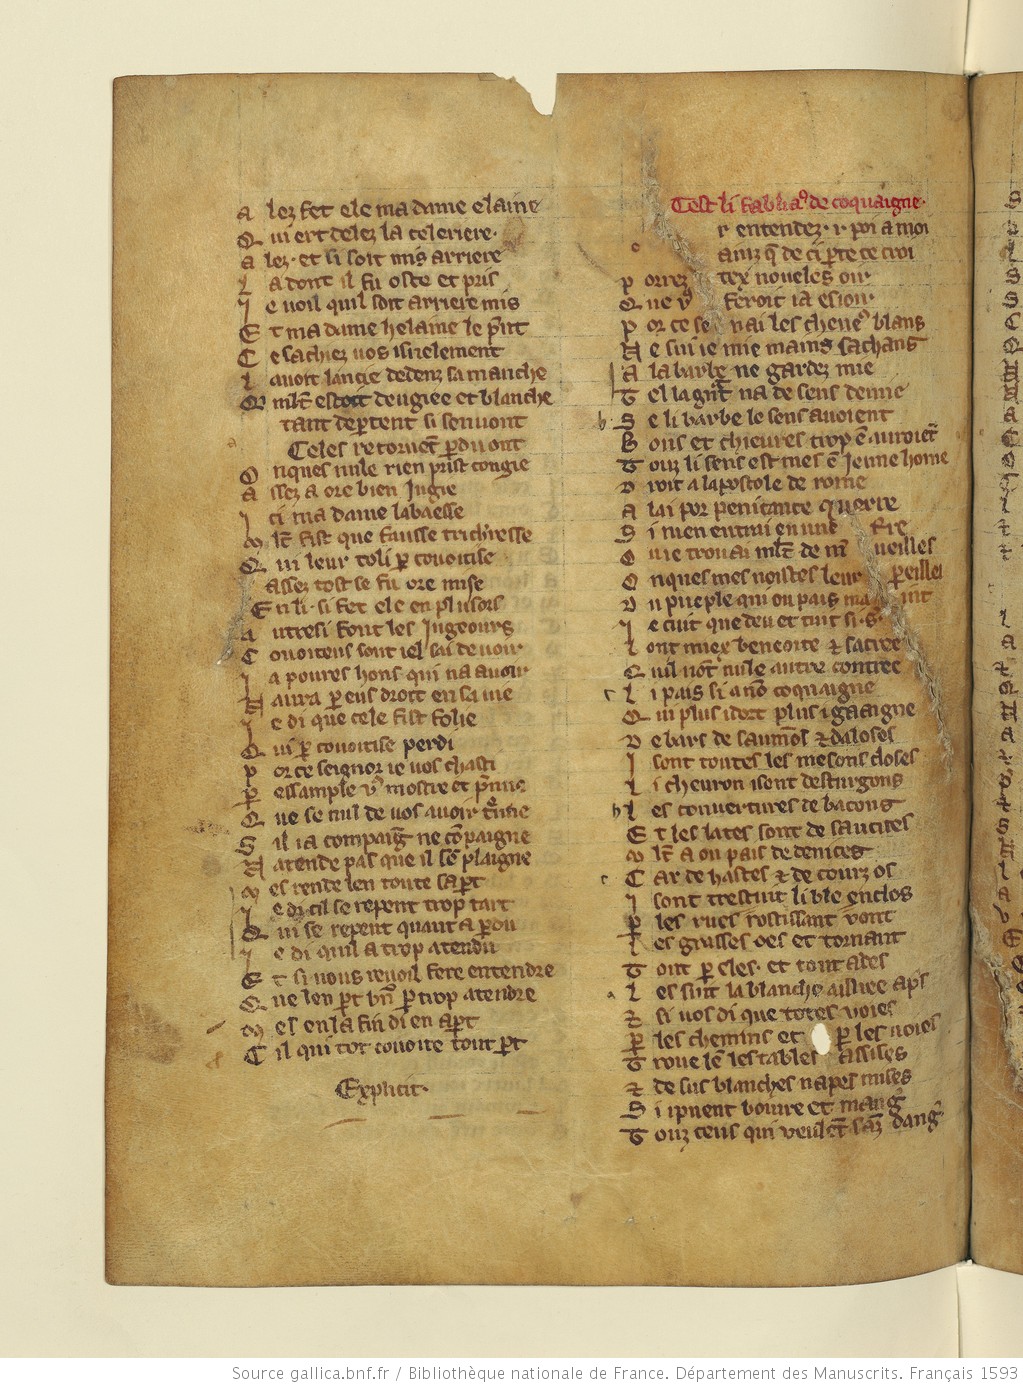 A lez fet ele ma dame elaine
Q ui ert delez la celeriere
A lez et li soit mis arriere
L adont il fu oste et pris
J e voil quil soit arriere mis
E t ma dame helaine le p̃nt
C e sachiez vos isnelement
L avoit lancie dedenz sa manche
Q ml̃t estoit deugiee et blanche
tant deꝑtent si sen vont
Celes retornẽt ꝑdu ont
O nques nule rien prist congie
A ssez a ore bien jugie
J ci ma dame labaesse
M l̃t fist que fausse tricheresse
Q ui leur toli ꝑ covoitise
assez tost se fu ore mise
E n li si fet ele en plusors
A utresi font les jugeours
C ovoiteus sont iel sai de voir
J a povres hons qui na avoir
N aura ꝑ eus droit en sa vie
J e di que cele fist folie
Q ui ꝑ covoitise perdi
P or ce seignor ie vos chasti
P essample v9 mostre et
Q ue se nul de vos avoir
S il i a ne cõpaigne
N atende pas que il sẽ plaigne
M es rende len toute sa ꝑt
J e di cil se repent trop tart
Q ui se repent quant a ꝑdu
J e di quil a trop atendu
E t si vous revoil fere entendre
Q ue len ꝑt bñ ꝑ trop atendre
M es en la fin di en apt
C il qui tot covoite tout ꝑt
Explicit.
Cest li fabliaꝰ de coquaigne.
r entendez. r poi a moi
ainz q̃ de ci ꝑte ce croi
P orrez tex noveles oir
Q ue v9 feroit ia esioir
P or ce se nai les cheveꝰ blans
N e sui ie mie mains sachans
A la barbe ne gardez mie
T el la grãt na de sens demie
S e li barbe le sens avoient
B ous et chievres trop ẽ auroiẽt
T ouz li sens est mes ẽ jeune home
D roit a lapostole de rome
A lai por penitance querre
S i men entrai en une t̃re
O u ie trovai ml̃t de m̃ veilles
O nques mes noistes leur ꝑeilles
D u pueple qui ou pais
J e cuit que deu et tuit si .s.
L ont miex beneoite & sacree
C uil nõt nule autre contree
L i pais si a nõ coquaigne
Q ui plus i dort plus i gaaigne
D e bars de saumõs & daloses
J sont toutes les mesons closes
L i chevron i sent desturgons
L es couvertures de bacons
E t les lates sont de saucices
M l̃t a ou pais de delices
C ar de hastes & de courz os
J sont trestuit li ble enclos
P les rues rostissant vont
L es grasses oes et tornant
T out ꝑ eles et tout ades
L es suit la blanche aillie aps
& si vos di que totes voies
P les chemins et ꝑ les voies
T rove lẽ les tables assises
& de sus blanches napes mises
S i ipuent boivre et mang̃
T ouz ceus qui veulẽt sãz dang̃
Source gallica.bnf.fr / Bibliothèque nationale de France. Département des Manuscrits. Français 1593